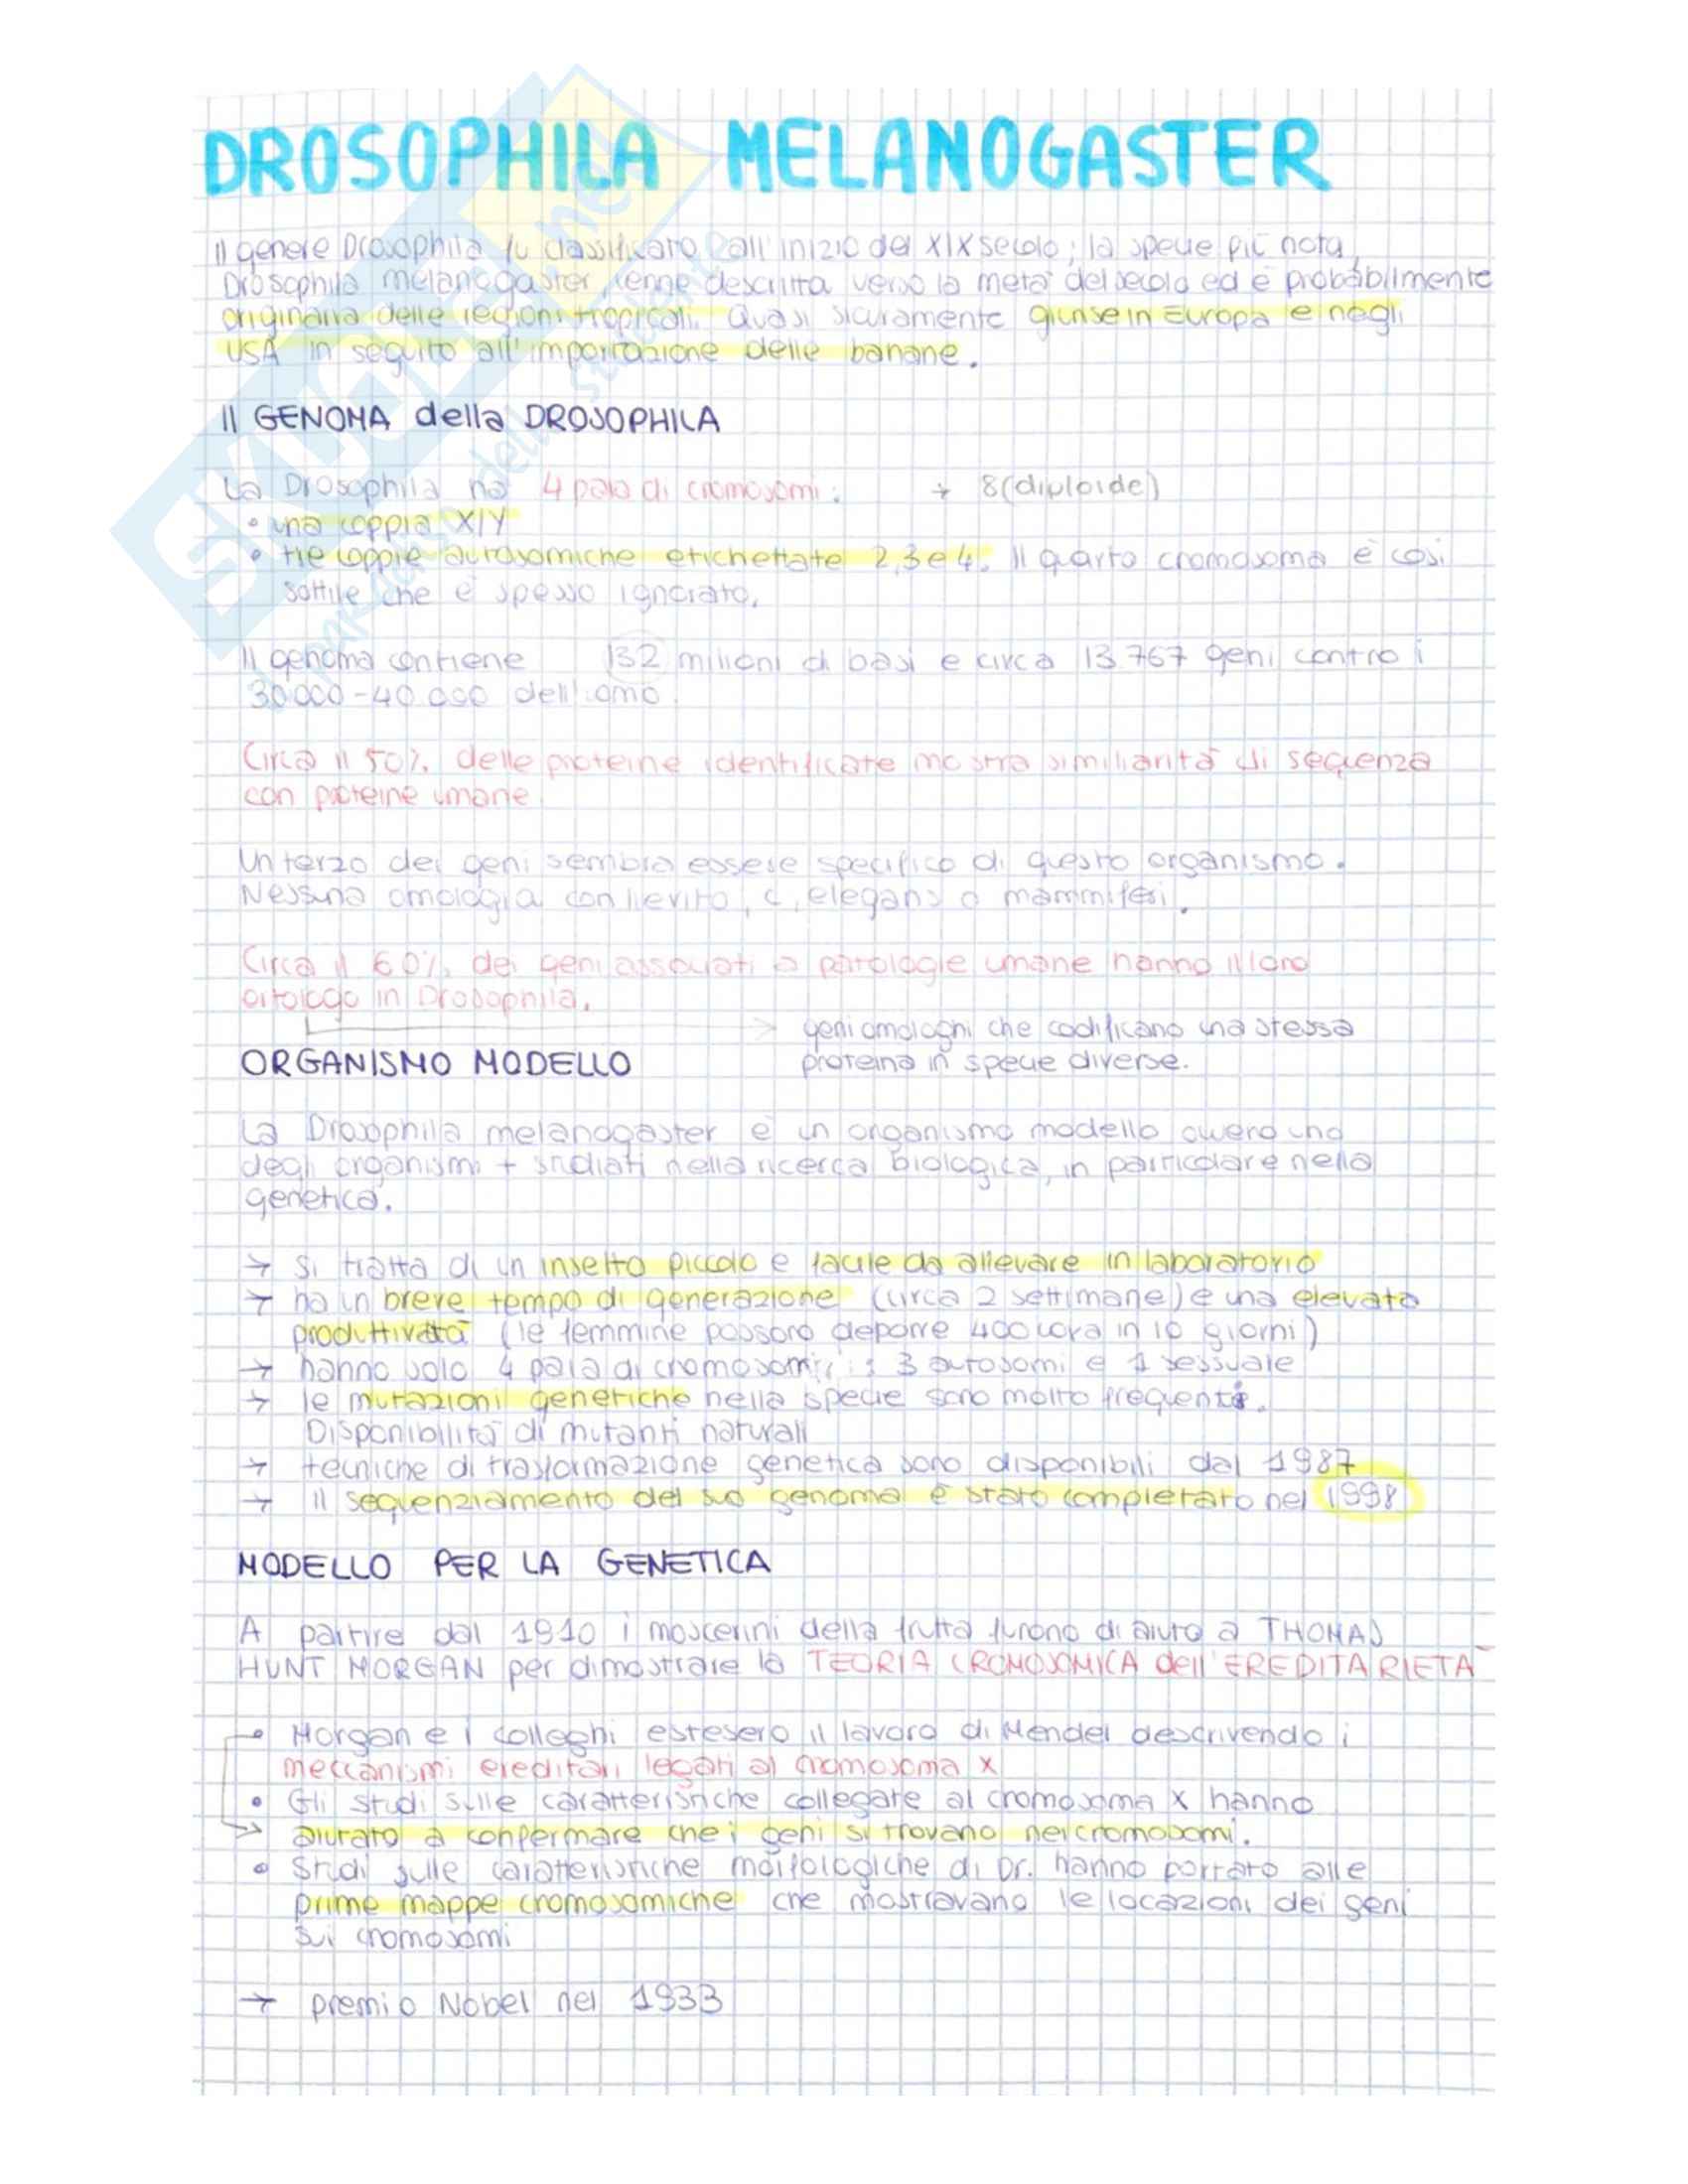 DROSOPHILA MELANOGASTER
Il genere Drosophila fu classificato all'inizio del XIX secolo; la specie più nota,
Drosophila melanogaster, venne descritta verso la metà del secolo ed è probabilmente
originaria delle regioni tropicali. Quasi sicuramente giunse in Europa e negli
USA in seguito all'importazione delle banane.
Il GENOMA della DROSOPHILA
La Drosophila ha 4 paia di cromosomi: → 8 (diploide)
• una coppia X/Y
• tre coppie autosomiche etichettate 2,3 e 4. Il quarto cromosoma è così
sottile che è spesso ignorato.
Il genoma contiene 132 milioni di basi e circa 13.767 geni contro i
30.000-40.000 dell'uomo.
Circa il 50% delle proteine identificate mostra similiarità di sequenza
con proteine umane
Un terzo dei geni sembra essere specifico di questo organismo.
Nessuna omologia con lievito, C. elegans o mammiferi.
Circa il 60% dei geni associati a patologie umane hanno il loro
ortologo in Drosophila.
→ geni omologhi che codificano una stessa
proteina in specie diverse.
ORGANISMO MODELLO
La Drosophila melanogaster è un organismo modello ovvero uno
degli organismi + studiati nella ricerca biologica, in particolare nella
genetica.
→ si tratta di un insetto piccolo e facile da allevare in laboratorio
→ ha un breve tempo di generazione (circa 2 settimane) e una elevata
produttività (le femmine possono deporre 400 uova in 10 giorni)
→ hanno solo 4 paia di cromosomi: 3 autosomi e 1 sessuale
→ le mutazioni genetiche nella specie sono molto frequenti.
Disponibilità di mutanti naturali
→ tecniche di trasformazione genetica sono disponibili dal 1987
→ il sequenziamento del suo genoma è stato completato nel 1998
MODELLO PER LA GENETICA
A partire dal 1910 i moscerini della frutta furono di aiuto a THOMAS
HUNT MORGAN per dimostrare la TEORIA CROMOSOMICA dell'EREDITARIETÀ
• Morgan e i colleghi estesero il lavoro di Mendel descrivendo i
meccanismi ereditari legati al cromosoma X
• Gli studi sulle caratteristiche collegate al cromosoma X hanno
→ aiutato a confermare che i geni si trovano nei cromosomi.
• Studi sulle caratteristiche morfologiche di Dr. hanno portato alle
prime mappe cromosomiche che mostravano le locazioni dei geni
sui cromosomi
→ premio Nobel nel 1933